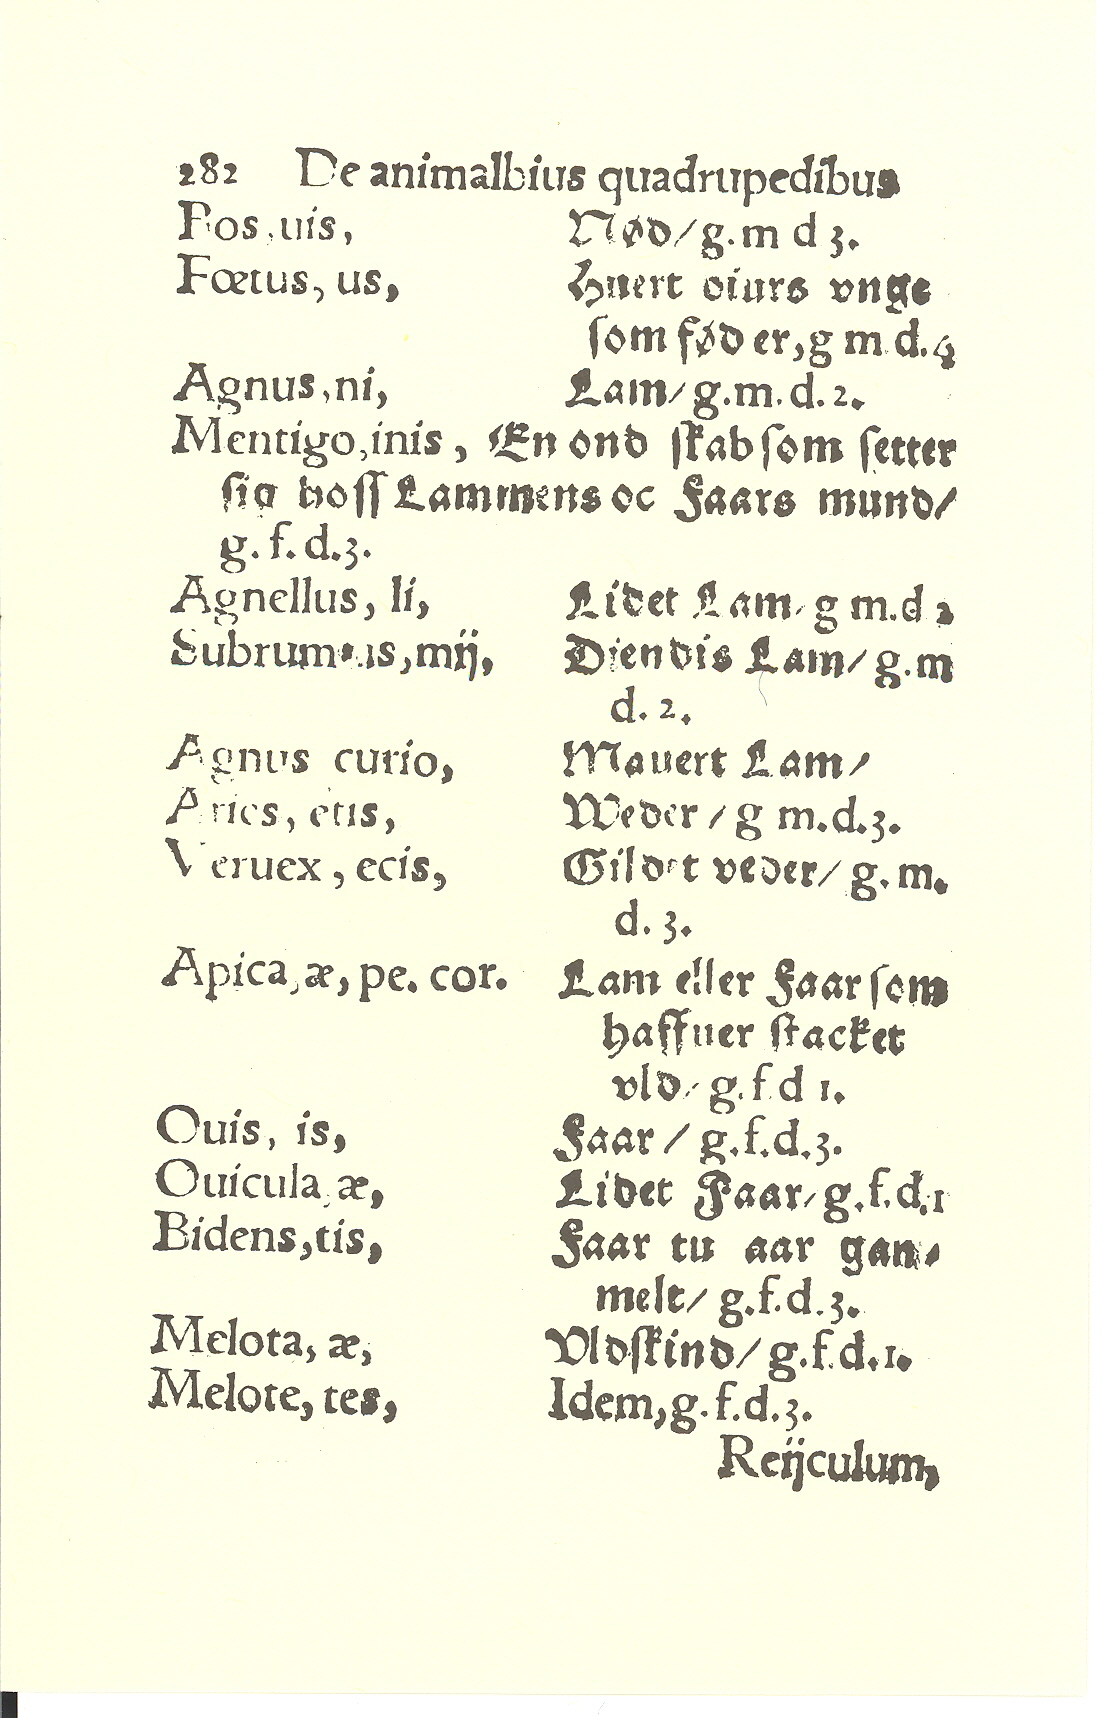 282 De animalbius quadrupedibus
Bos, uis, Nød/ g. m d 3.
Fœtus, us, Huert diurs vnge
som fød er, g m d. 4
Agnus, ni, Lam/ g. m. d. 2.
Mentigo, inis, En ond skab som setter
sig hoss Lammens oc Faars mund/
g. f. d. 3.
Agnellus, li, Lidet Lam/ g m. d 2
mij, Diendis Lam/ g. m
d. 2.
Agnus curio, Mauert Lam/
Aries, etis, Weder / g m. d. 3.
Veruex, ecis, Gildet veder/ g. m.
d. 3.
Apica, æ, pe. cor. Lam eller Faar som
haffuer stacket
vld/ g. f d 1.
Ouis, is, Faar / g. f. d. 3.
Ouicula, æ, Lidet Faar/ g. f. d. 1
Bidens, tis, Faar tu aar gam/
melt/ g. f. d. 3.
Melota, æ, Vldskind/ g. f. d. 1.
Melote, tes, Idem, g. f. d. 3.
Reijculum,